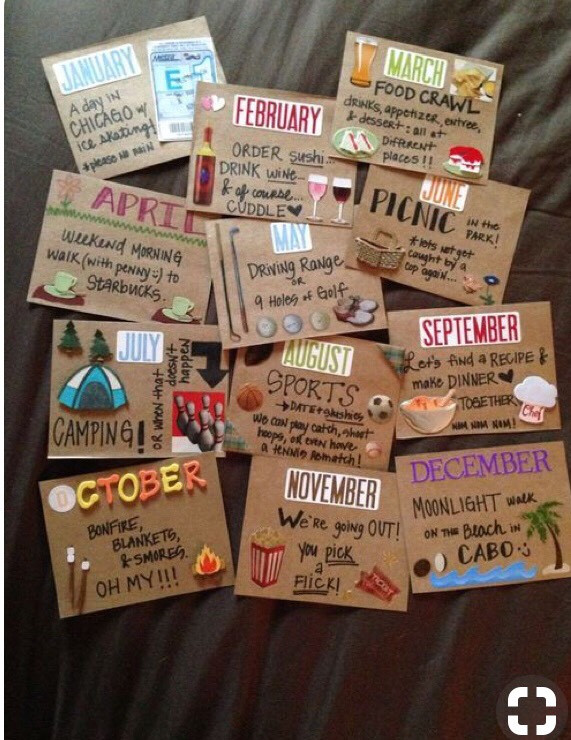 JANUARY
A day in
CHICAGO w/
ice skating!
*please no rain
E
FEBRUARY
ORDER sushi...
DRINK wine...
& of course...
CUDDLE
MARCH
FOOD CRAWL
drinks, appetizer, entree,
& dessert: all at
Different
places!!
APRIL
Weekend MORNING
walk (with penny :) to
STARBUCKS.
MAY
DRIVING RANGE
OR
9 Holes of Golf
JUNE
PICNIC IN the
PARK!
*lets not get
caught by a
cop again...
JULY
CAMPING!
OR when that
doesn't
happen
AUGUST
SPORTS
DATE + slushies
We can play catch, shoot
hoops, OR even have
a tennis rematch!
SEPTEMBER
Let's find a RECIPE &
make DINNER
TOGETHER
NOM NOM NOM!
Chef
OCTOBER
BONFIRE,
BLANKETS,
& SMORES.
OH MY!!!
NOVEMBER
We're going OUT!
you pick
a
FLICK!
TICKET
DECEMBER
MOONLIGHT walk
ON THE Beach in
CABO